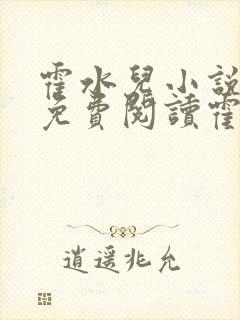 霍水兒小說
免費閱讀霍
逍遙兆允